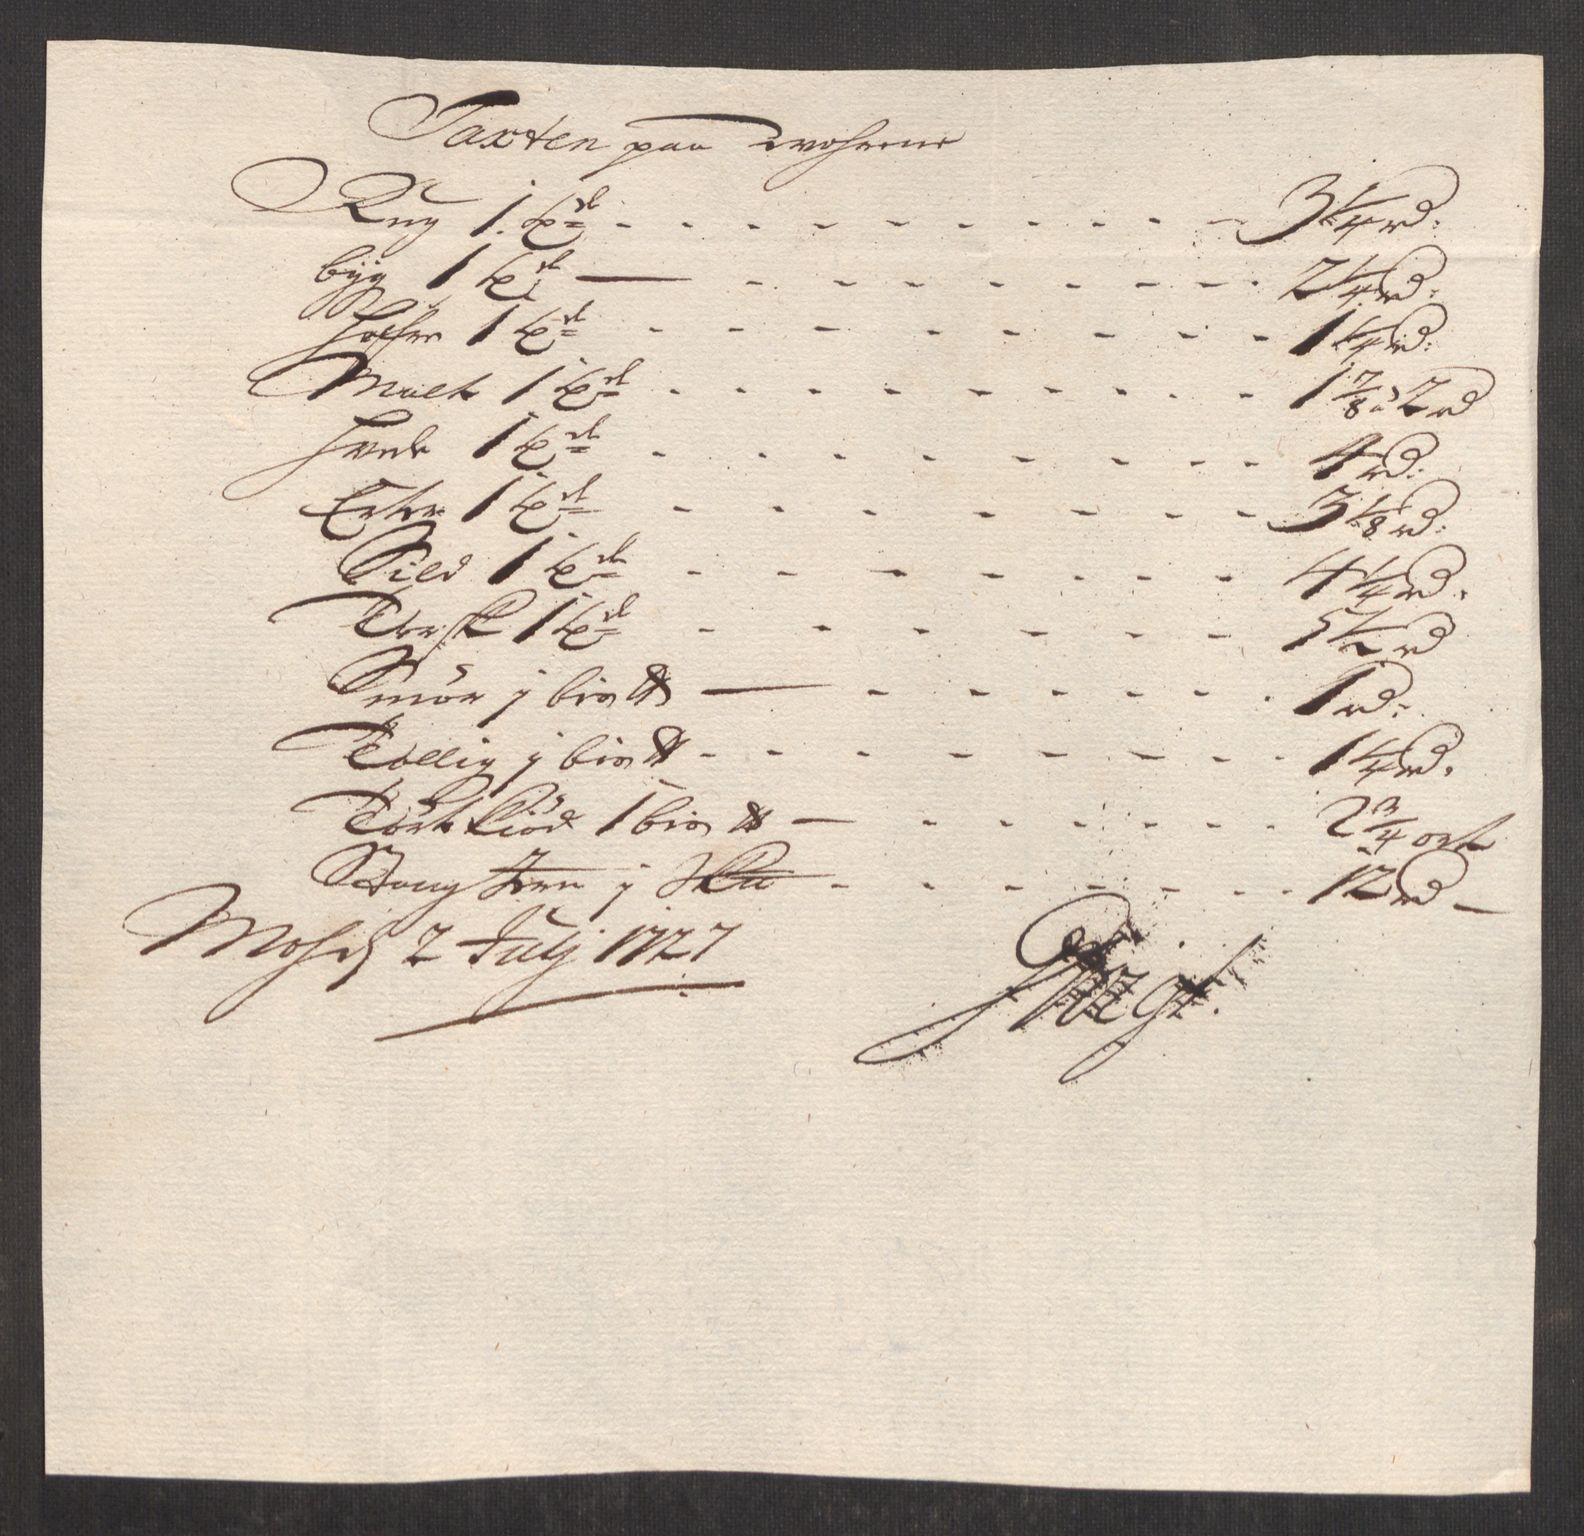 Taxten paa wohrene
Rug 1. td - - - 3 1/4 rd:
byg 1 td - - - 2 1/4 rd:
hafre 1 td - - - 1 1/4 rd:
Malt 1 td - - - 1 7/8 à 2 rd
hvede 1 td - - - 4 rd:
Erter 1 td - - - 3 1/8 rd:
Sild 1 td - - - 4 1/4 rd.
Torsk 1 td - - - 5 1/2 rd
Smör j bis ℔ - - - 1 rd:
Tallig j bis ℔ - - - 1 1/4 rd.
Tört kiöd 1 bis ℔ - - - 2 3/4 ort
Stang Jern j Sk℔ - - - 12 rd
2 July 1727